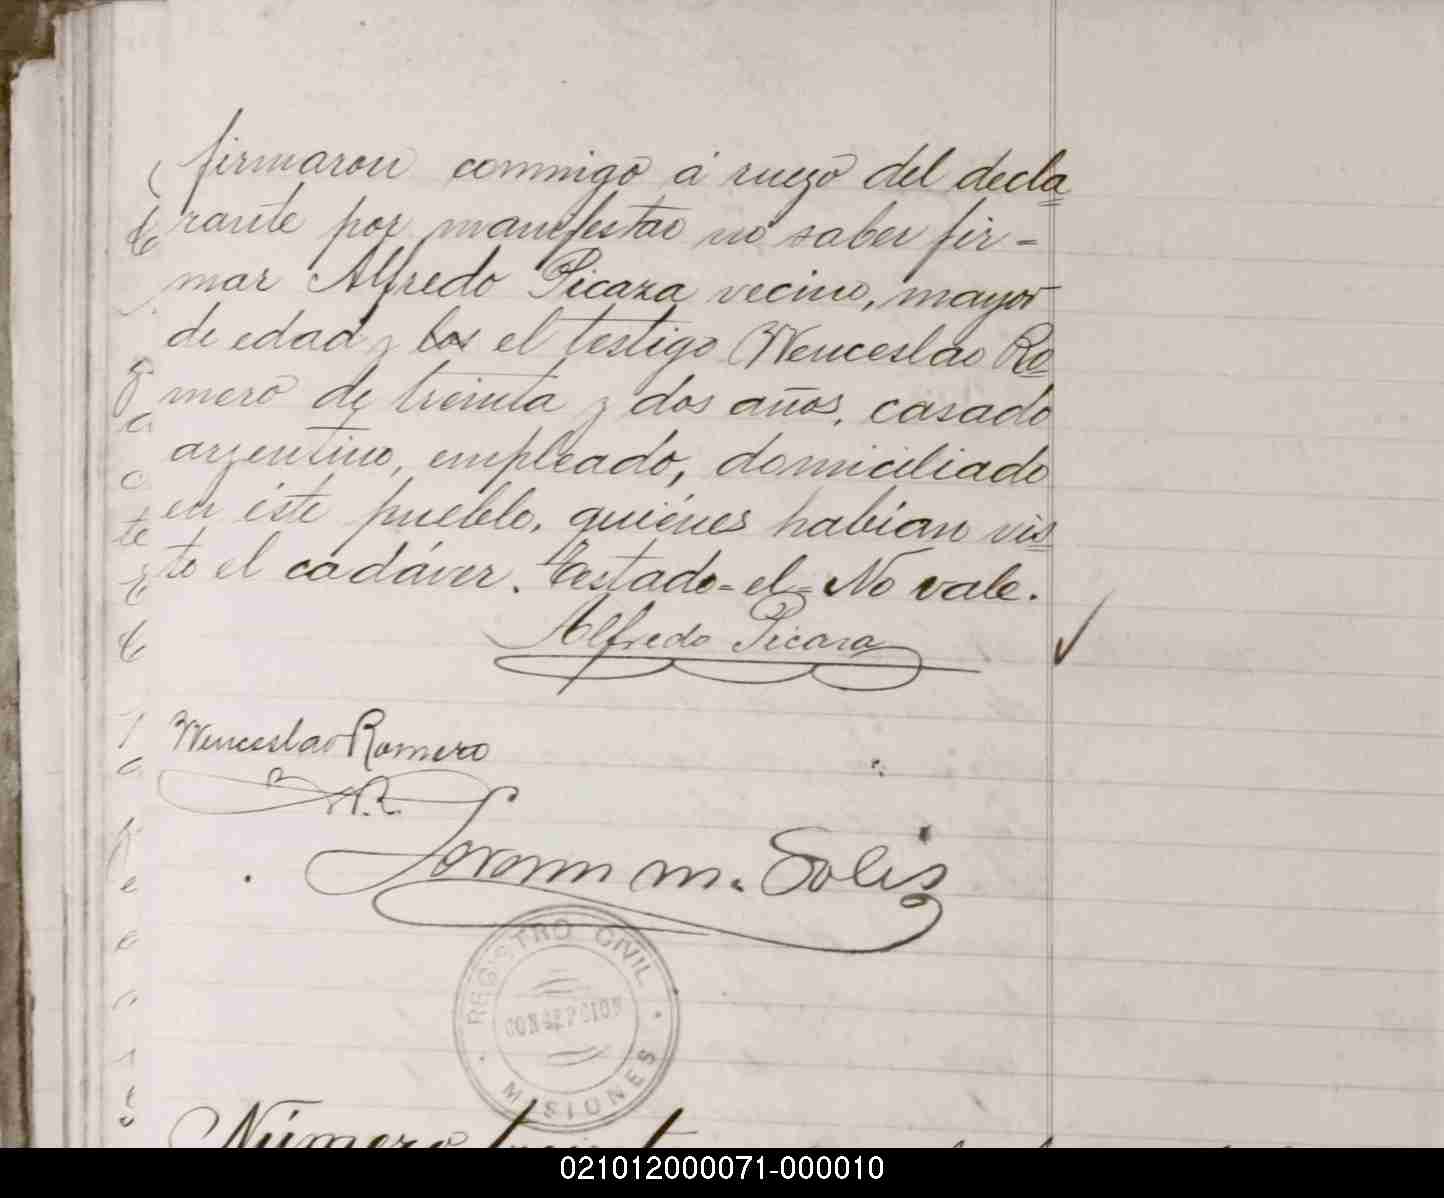 firmaron conmigo á ruego del decla
rante por manifestar no saber fir=
mar Alfredo Picaza vecino, mayor
de edad y los el testigo Wenceslao Ro
mero de treinta y dos años, casado
argentino, empleado, domiciliado
en éste pueblo, quiénes habian vis
to el cadáver. Testado=el=No vale.
Alfredo Picaza
Wenceslao Romero
m. Solis
REGISTRO CIVIL
CONCEPCION
MISIONES
Número
021012000071-000010